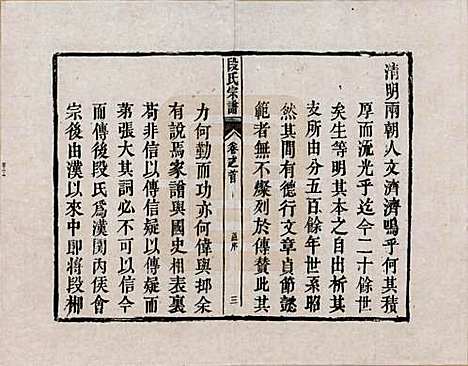 清明兩朝人文濟濟嗚乎何其積
厚而流光乎迄今二十餘世
矣生等明其本之自出析其
支所由分五百餘年世系昭
然其間有德行文章貞節懿
範者無不燦列於傳贊此其
段氏宗譜
卷之首
三
力何勤而功亦何偉與挪余
有說焉家譜與國史相表裏
苟非信以傳信疑以傳疑而
第張大其詞必不可以信今
而傳後段氏為漢閩內侯會
宗後由漢以來中即將段郴